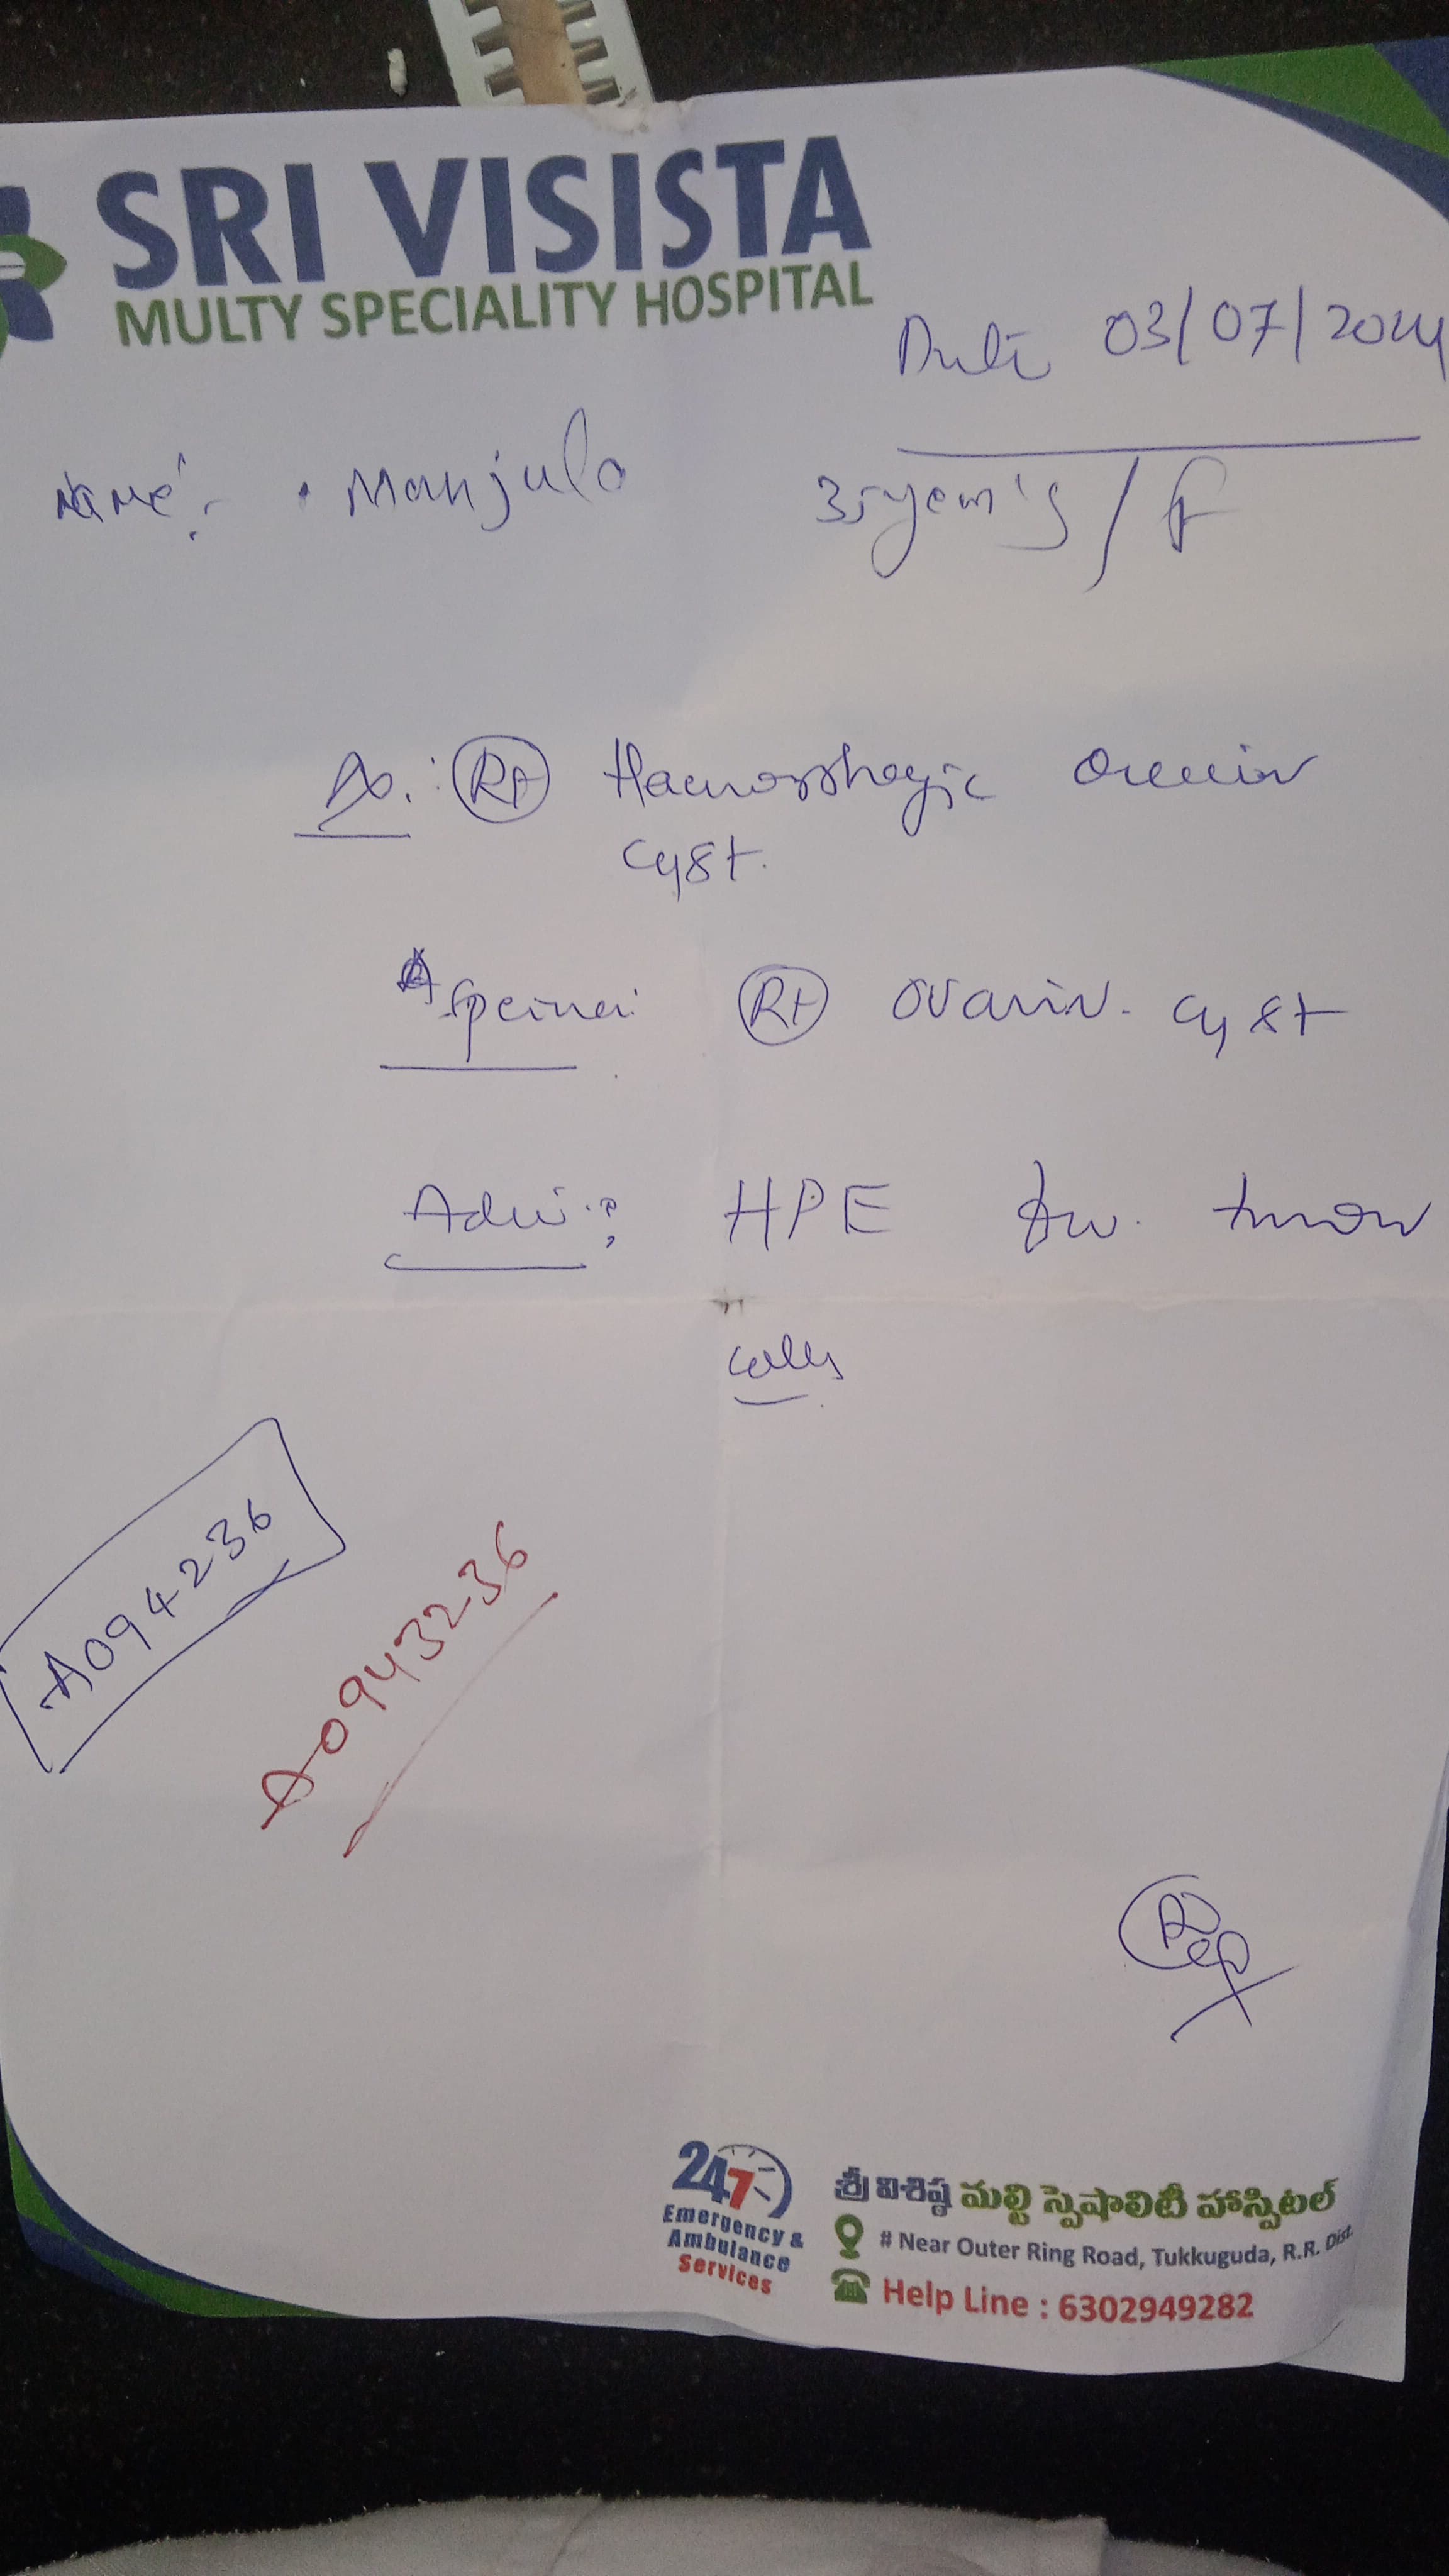 SRI VISISTA
MULTY SPECIALITY HOSPITAL
Date 03/07/2024
Name: . Manjula 35 years / F
Dx.: Rt Haemorrhagic ovarian
cyst.
Specimen: Rt ovarian. cyst
Adv: HPE for. tumor
cells
A094236
A0943236
247
Emergency &
Ambulance
Services
శ్రీ విశిష్ఠ మల్టి స్పెషాలిటీ హాస్పిటల్
# Near Outer Ring Road, Tukkuguda, R.R. Dist.
Help Line : 6302949282